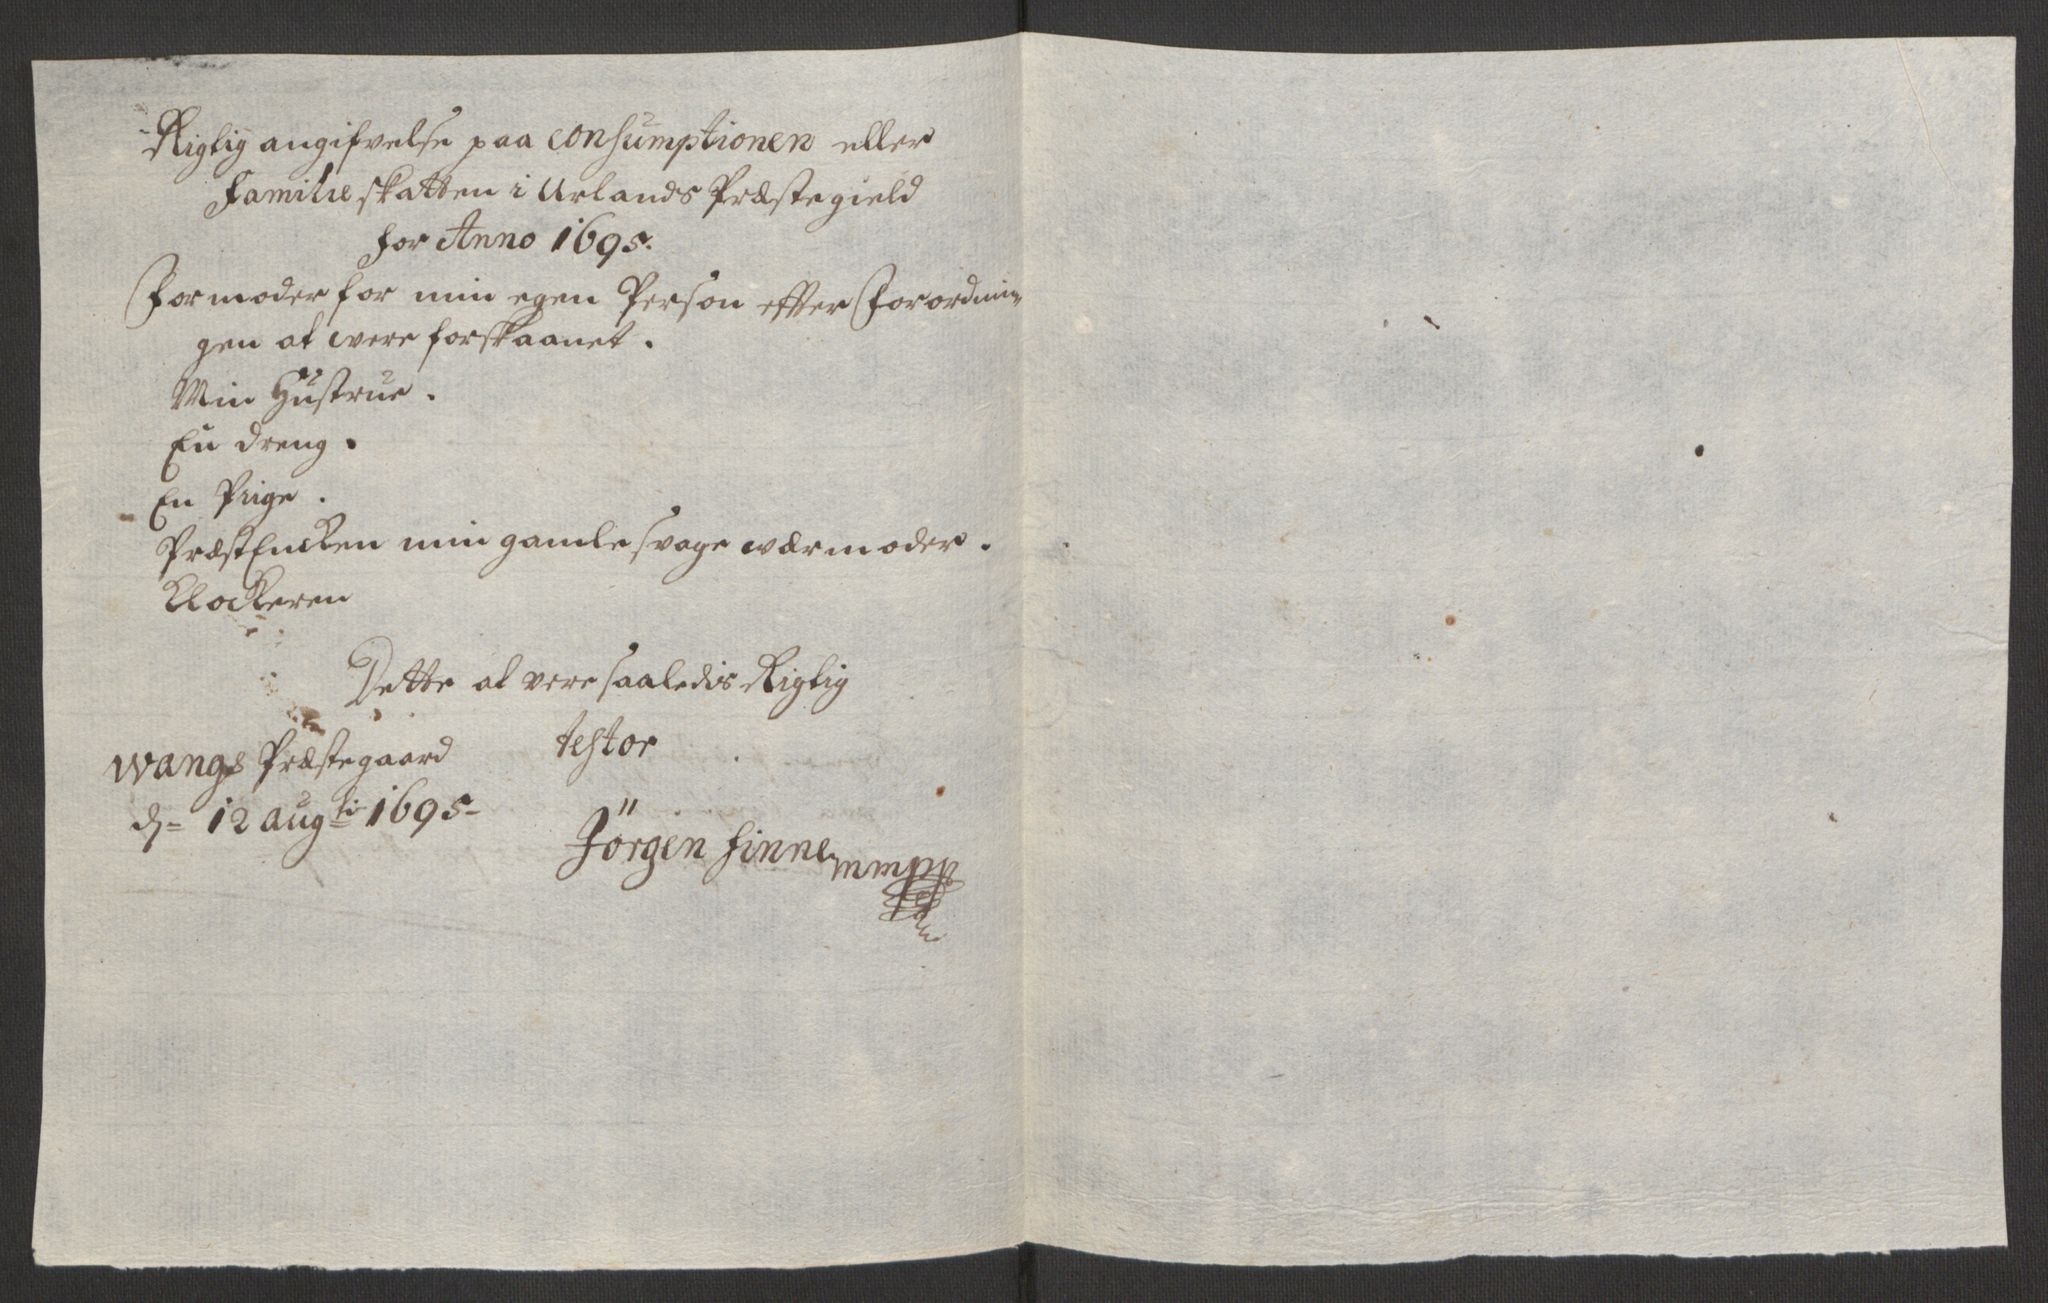 Rigtig angifvelse paa Consumptionen eller
Familie skatten i Urlands Præstegield
for Anno 1695.
Formoder for min egen Person effter Forordnin-
gen at were forskaanet.
Min Hustrue.
En dreng.
En Piige.
PræstEncken min gamle svage wærmoder.
Klockeren
Dette at vere saaledis Rigtig
testor
Wangs Præstegaard
dn 12 augsti 1695
Jörgen Finne mmpp